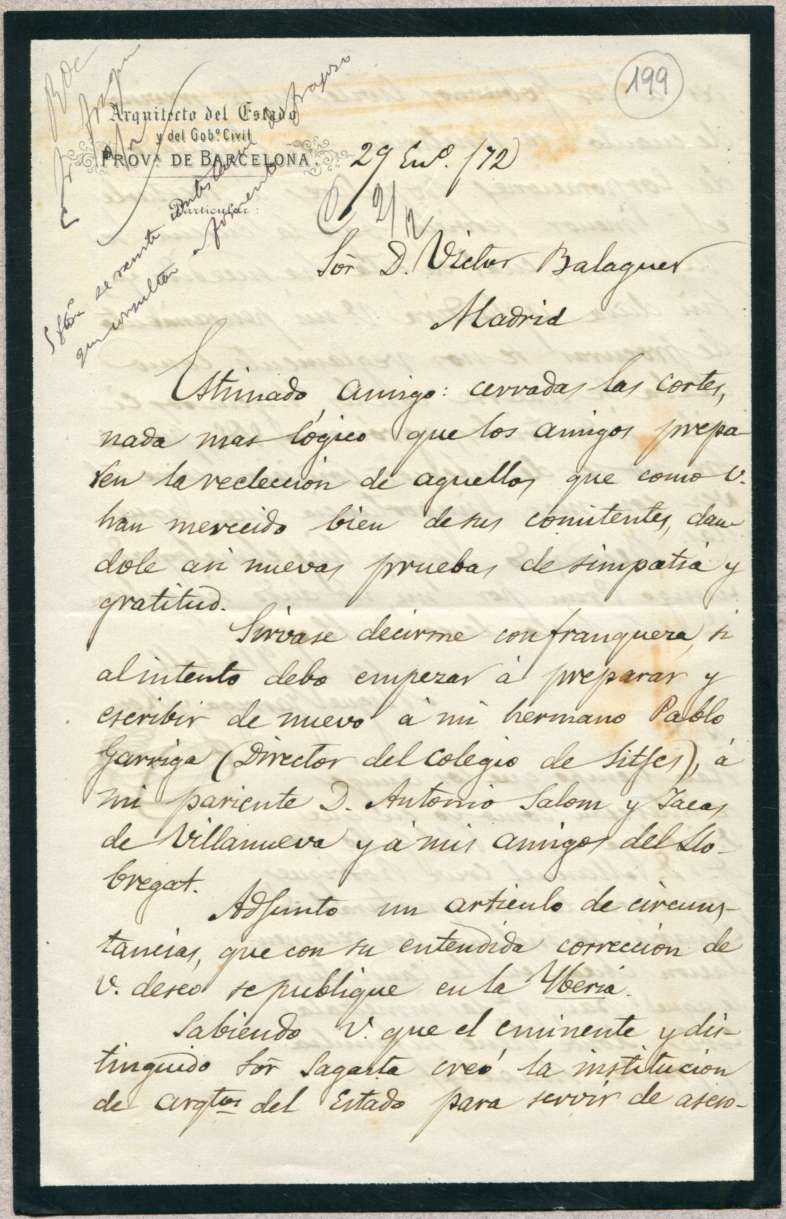 199
Arquitecto del Estado
y del Gobº. Civil
PROVª. DE BARCELONA.
Particular.
29 Enº. /72
C 2/2
Sor D. Victor Balaguer
Madrid
Estimado amigo: cerradas las cortes,
nada mas lógico que los amigos prepa
ren la reeleccion de aquellos que como V.
han merecido bien de sus comitentes, dan
dole asi nuevas pruebas de simpatia y
gratitud.
Sirvase decirme con franqueza, si
al intento debo empezar á preparar y
escribir de nuevo á mi hermano Pablo
Garriga (Director del colegio de Sitjes), á
mi pariente D. Antonio Salom y
de Villanueva y á mis amigos del Llo-
bregat.
Adjunto un articulo de circuns-
tancias, que con su entendida correccion de
V. deseo se publique en la Yberia.
Sabiendo V. que el eminente y dis-
tinguido Sor Sagasta creó la institucion
de arqtos del Estado para servir de aseso-